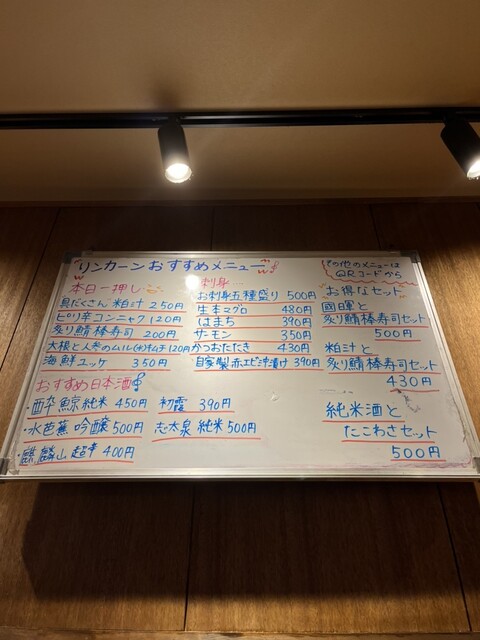 リンカーンおすすめメニュー
本日一押し
具だくさん粕汁 250円
ピリ辛コンニャク 120円
炙り鯖棒寿司 200円
大根と人参のムル(水)キムチ 120円
海鮮ユッケ 350円
おすすめ日本酒
・酔鯨 純米 450円 初霞 390円
・水芭蕉 吟醸 500円 志太泉 純米 500円
・麒麟山 超辛 400円
刺身
お刺身五種盛り 500円
生本マグロ 480円
はまち 390円
サーモン 350円
かつおたたき 430円
自家製 赤エビ沖漬け 390円
その他のメニューは
QRコードから
お得なセット
國暉と
炙り鯖棒寿司セット
500円
粕汁と
炙り鯖棒寿司セット
430円
純米酒と
たこわさセット
500円